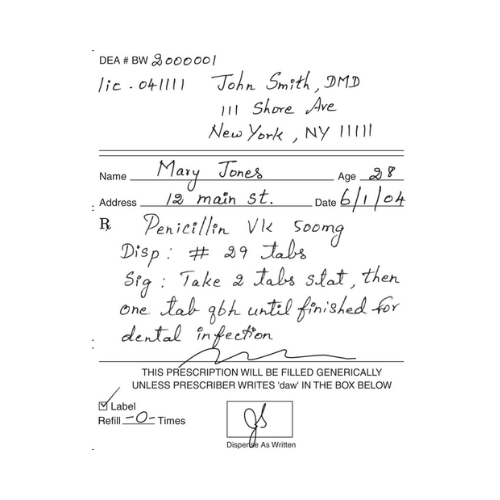 DEA # BW 2000001
lic . 041111 John Smith, DMD
111 Shore Ave
New York, NY 11111
Name Mary Jones Age 28
Address 12 main st. Date 6/1/04
℞ Penicillin Vk 500mg
Disp : # 29 tabs
Sig : Take 2 tabs stat, then
one tab q6h until finished for
dental infection
THIS PRESCRIPTION WILL BE FILLED GENERICALLY
UNLESS PRESCRIBER WRITES 'daw' IN THE BOX BELOW
Label
Refill -0- Times
Dispense As Written